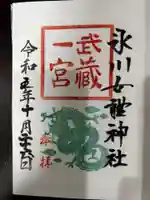 氷川女體神社
武蔵
一宮
奉拝
令和五年十月二十六日